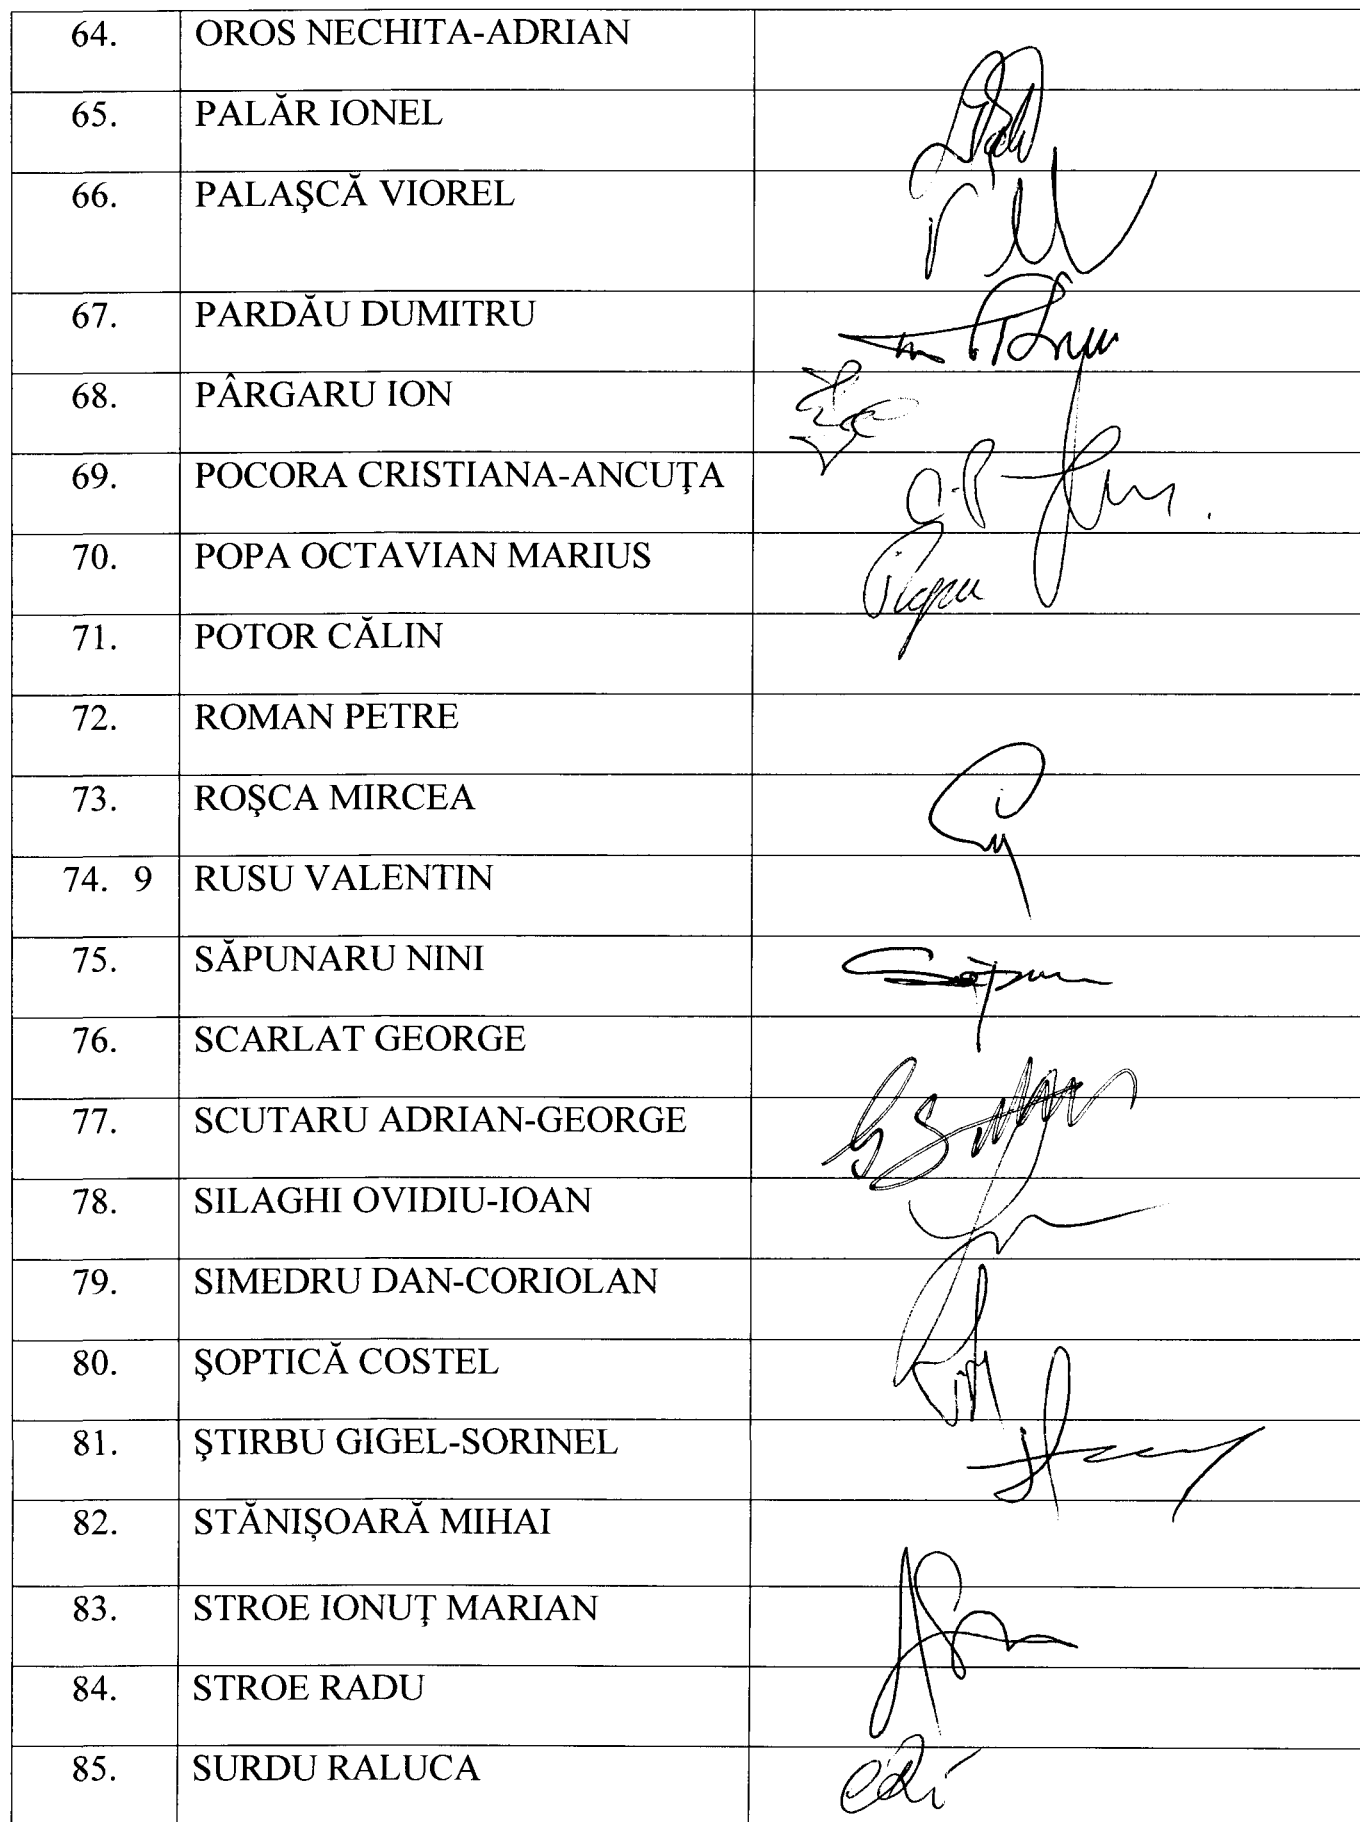 64. OROS NECHITA-ADRIAN
65. PALĂR IONEL
66. PALAŞCĂ VIOREL
67. PARDĂU DUMITRU
68. PÂRGARU ION
69. POCORA CRISTIANA-ANCUŢA
70. POPA OCTAVIAN MARIUS
71. POTOR CĂLIN
72. ROMAN PETRE
73. ROŞCA MIRCEA
74. 9 RUSU VALENTIN
75. SĂPUNARU NINI
76. SCARLAT GEORGE
77. SCUTARU ADRIAN-GEORGE
78. SILAGHI OVIDIU-IOAN
79. SIMEDRU DAN-CORIOLAN
80. ŞOPTICĂ COSTEL
81. ŞTIRBU GIGEL-SORINEL
82. STĂNIŞOARĂ MIHAI
83. STROE IONUŢ MARIAN
84. STROE RADU
85. SURDU RALUCA